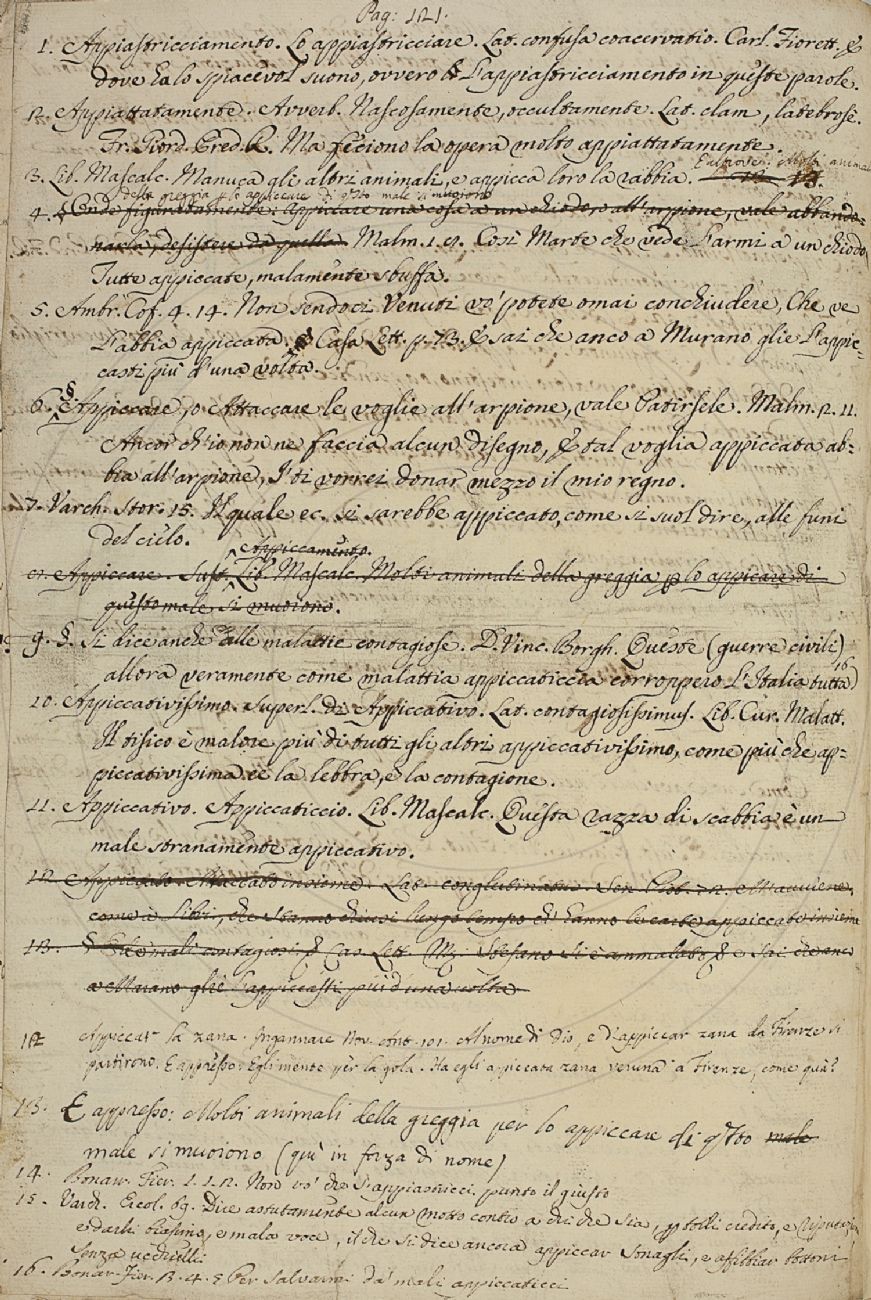 Pag: 121.
1. Appiastricciamento. Lo appiastricciare. Lat. confusa coacervatio. Carl. Fiorett. E
dove ha lo spiacevol suono, ovvero l'appiastricciamento in queste parole.
2. Appiattatamente. Avverb. Nascosamente, occultamente. Lat. clam, latebrose.
Fr. Giord. Pred. R. Ma feciono la opera molto appiattatamente.
E altrove: Molti animali
3. Lib. Mascalc. Manuca gli altri animali, e appicca loro la rabbia. 12 13.
della greggia p lo appiccare di qsto male si muoiono
4. § Onde figuratamente: Appiccare una cosa a un chiodo, o all'arpione, vale abbando-
narla, desistere da quella. Malm. 1. 9. Così Marte che vede l'armi a un chiodo
Tutte appiccate, malamente sbuffa.
5. Ambr. Cof. 4. 14. Non sendoci Venuti vo' potete omai conchiudere, Che ve
l'abbia appiccata. Casa Lett. p. 73. E sai che anco a Murano glie l'appic-
casti più d'una volta.
6. § Appiccare, o Attaccare le voglie all'arpione, vale Patirsele. Malm. 2. 11.
Ancor ch'io non ne faccia alcun disegno, E tal voglia appiccata ab-
bia all'arpione, I' ti vorrei donar mezzo il mio regno.
7. Varch. Stor. 15. Il quale ec. si sarebbe appiccato, come si suol dire, alle funi
del cielo.
Appiccamento.
Appiccare. Sust. Lib. Mascalc. Molti animali della greggia p lo appicare di
questo male, si muoiono.
9. §. Si dice anche delle malattie contagiose. D. Vinc. Borgh. Queste (guerre civili)
allora veramente come malattia appiccaticcia corroppero l'Italia tutta) 16
10. Appiccativissimo. Superl. di Appiccativo. Lat. contagiosissimus. Lib. Cur. Malatt.
Il tisico è malore più di tutti gli altri appiccativissimo, come più che ap-
piccativissima è la lebbra, e la contagione.
11. Appiccativo. Appiccaticcio. Lib. Mascalc. Questa razza di scabbia è un
male stranamente appiccativo.
12. Appiccato. Attaccato insieme. Lat. conglutinatus. Sen. Pist. 72. Avviene,
come a' libri, che stanno chiusi lungo tempo ch' hanno le carte appiccate insieme
13. § De' mali contagiosi. Cas. Lett. Mz. Stefano si è ammalato, e sai che anco
a Murano glie l'appiccasti più d'una volta
12 Appiccar la zana. Ingannare Nov. Ant. 101. Al nome di Dio, e d'appiccar zana da Firenze si
partirono. E appresso: Egli mente per la gola. Ha egli appiccata zana veruna a Firenze, come quà?
13. E appresso: Molti animali della greggia per lo appiccare di q'sto male
male si muoiono (quì in forza di nome)
14. Bonar. Fier. 1. 1. 2. Non vo' che s'appiastricci punto il giusto
15. Varch. Ercol. 69. Dice astutamente alcun motto contro a chi che sia, p torli credito, e riputazione
e darli biasimo, e mala voce, il che si dice ancora appiccar sonagli, e affibbiar bottoni
senza ucchielli
16. Bonar. Fier. 3. 4. 5 Per salvarmi da' mali appiccaticci